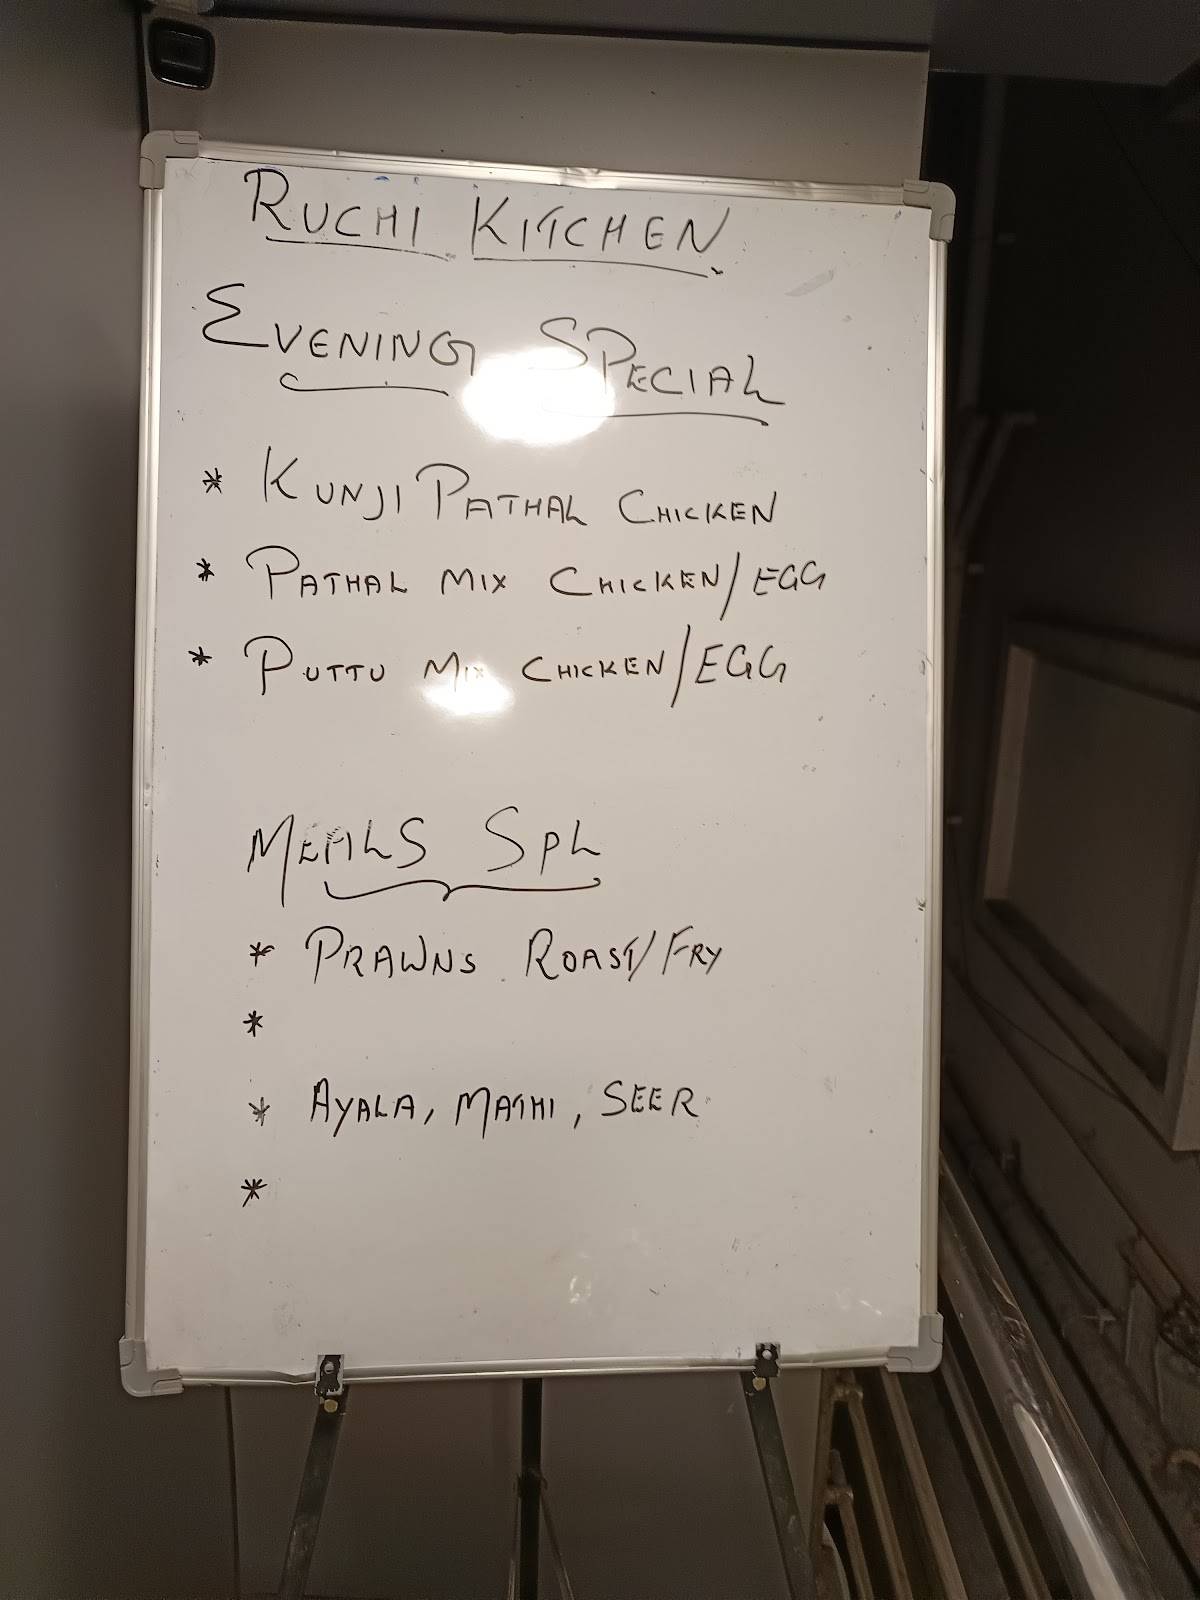 RUCHI KITCHEN
EVENING SPECIAL
* KUNJI PATHAL CHICKEN
* PATHAL MIX CHICKEN/EGG
* PUTTU MIX CHICKEN/EGG
MEALS SPL
* PRAWNS ROAST/FRY
*
* AYALA, MATHI, SEER
*